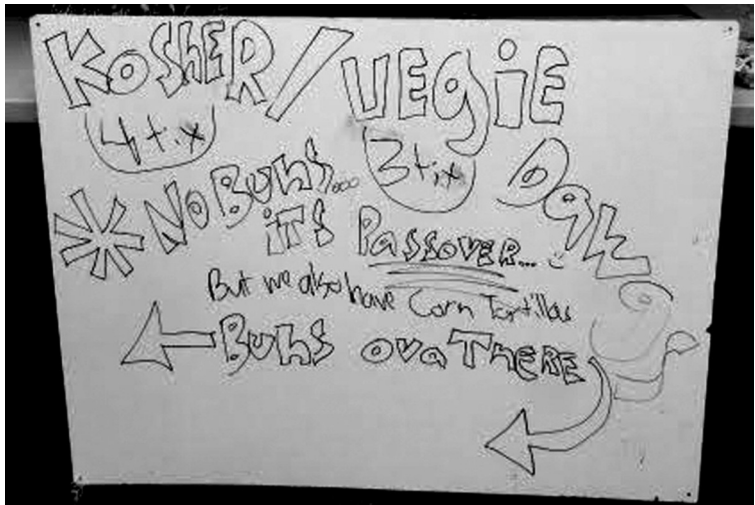 KOSHER / VEGIE
4 tix
3 tix
DAWGS
* NO BUNS...
iTS PASSOVER... :)
But we also have Corn Tortillas
BUNS OVA THERE